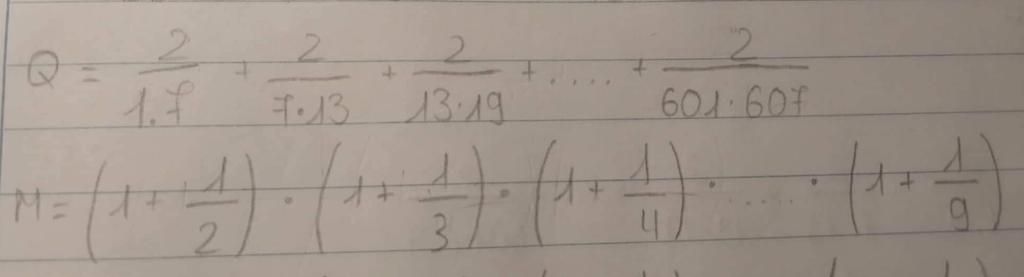 Q = 2/1.7 + 2/7.13 + 2/13.19 + ..... + 2/601.607
M = (1 + 1/2) . (1 + 1/3) . (1 + 1/4) . ..... . (1 + 1/9)